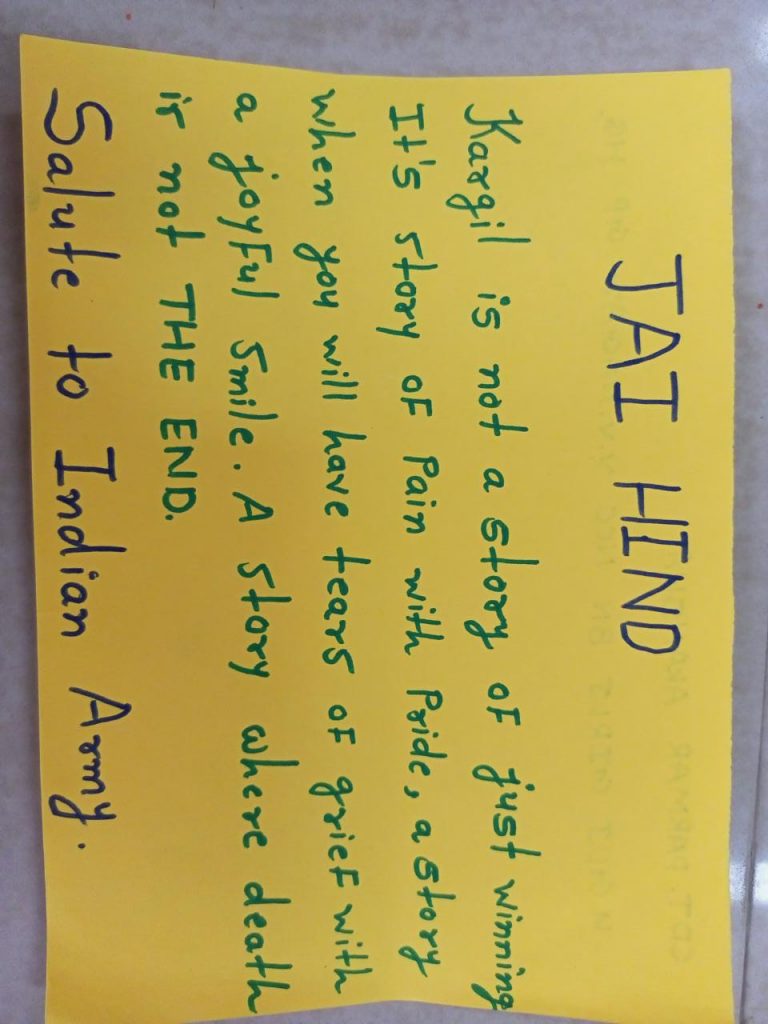 JAI HIND
Kargil is not a story of just winning
It's story of Pain with Pride, a story
when you will have tears of grief with
a joyful Smile. A story where death
is not THE END.
Salute to Indian Army.